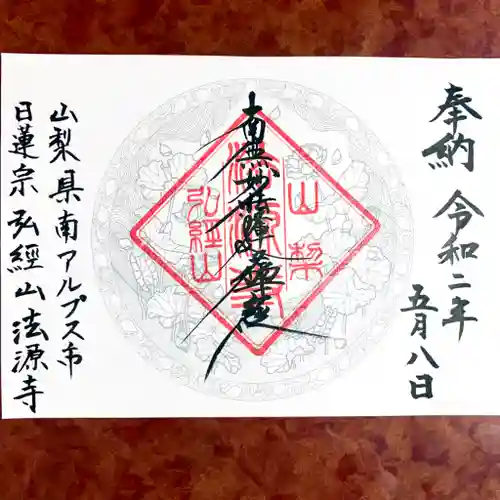 奉納 令和二年
五月八日
南無妙法蓮華經
山梨
弘經山
山梨県南アルプス市
日蓮宗 弘經山 法源寺